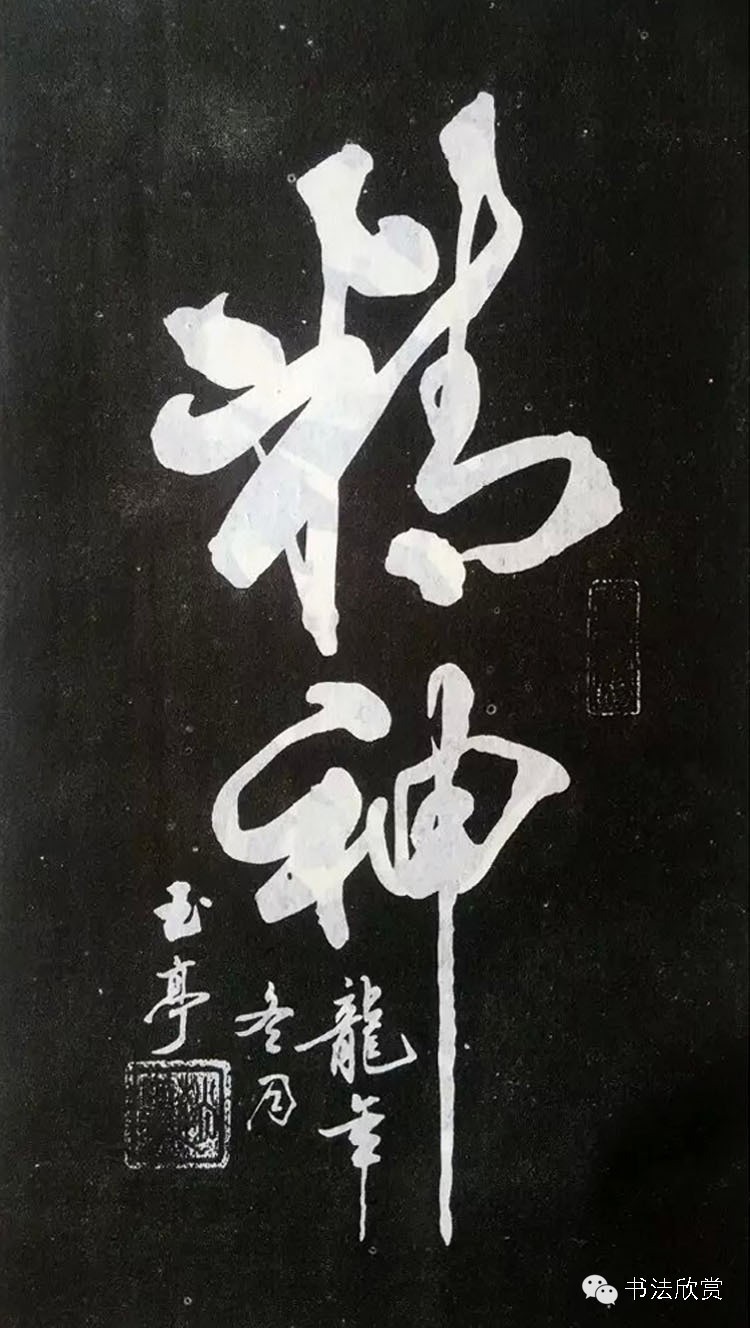 精神
龍年
冬月
玉亭
书法欣赏